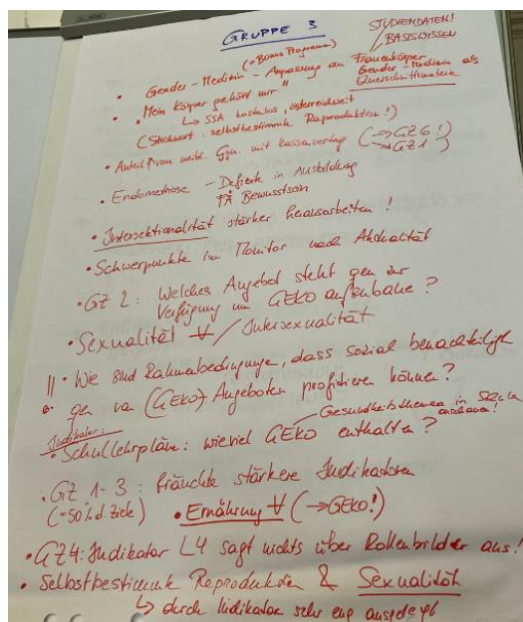 GRUPPE 3
STUDIENDATEN!
BASISWISSEN
(+ Bonus Programm)
• Gender-Medizin - Anpassung an Frauenkörper
Gender-Medizin als
Querschnittsmaterie
• "Mein Körper gehört mir"
↳ SSA kostenlos, österreichweit
(Stichwort: selbstbestimmte Reproduktion!)
• Anteil von weibl. Gyn. mit Kassenvertrag (→ GZ 6!)
→ GZ 1
• Endometriose - Defizite in Ausbildung
Bewusstsein
• Intersektionalität stärker herausarbeiten!
• Schwerpunkte im Monitor nach Aktualität
• GZ 2: Welches Angebot steht gen zur
Verfügung um GEKO aufzubauen?
• Sexualität ∀ / Intersexualität
|| • Wie sind Rahmenbedingungen, dass sozial benachteiligte
gen von (GEKO) Angeboten profitieren können?
Gesundheitsthemen in
Indikator:
• Schullehrpläne: wieviel GEKO enthalten?
• GZ 1-3: bräuchte stärkere Indikatoren
(=50% d. Ziele) • Ernährung ∀ (→ GEKO!)
• GZ4: Indikator L4 sagt nichts über Rollenbilder aus!
• Selbstbestimmte Reproduktion & Sexualität
↳ durch Indikator sehr eng ausgelegt